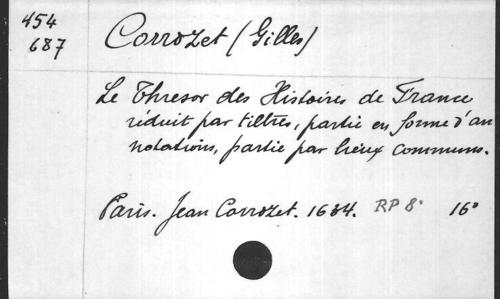 454
687
Corrozet (Gilles)
Le Thresor des Histoires de France
réduit par tiltres, partie en forme d'an
notations, partie par lieux communs.
Paris. Jean Corrozet. 1634. RP 8° 16°